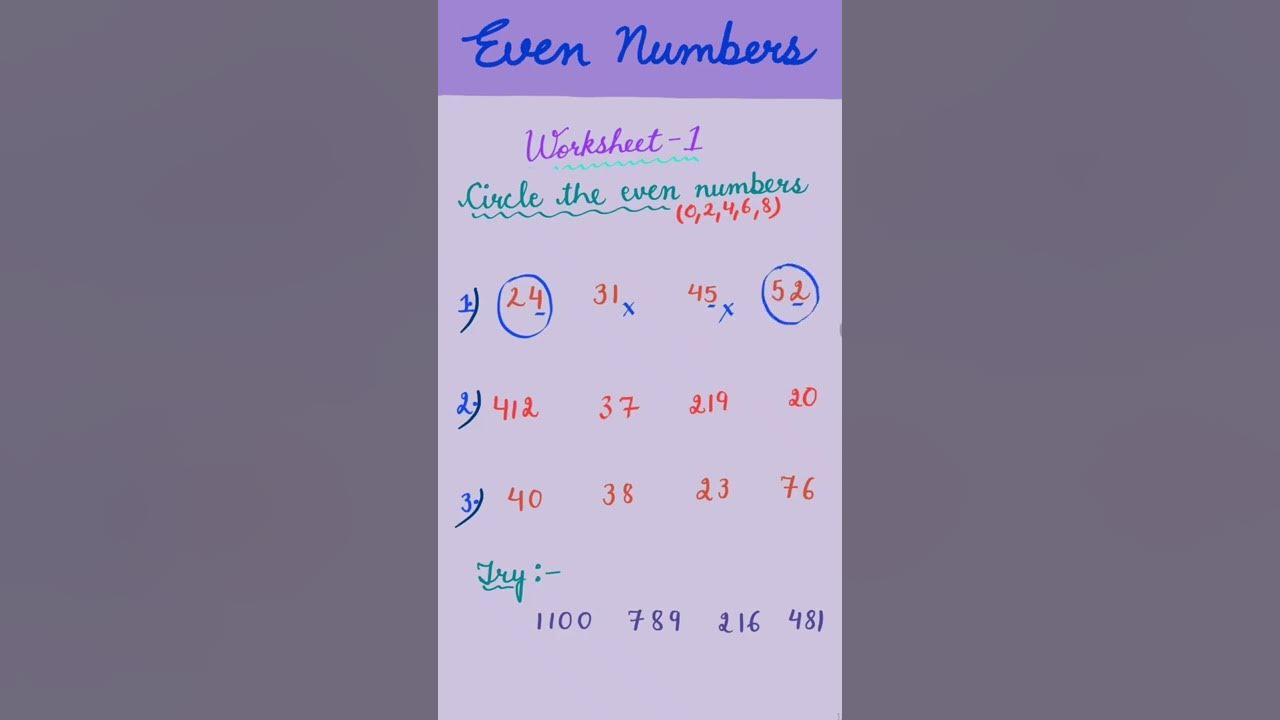 Even Numbers
Worksheet-1
Circle the even numbers
(0,2,4,6,8)
1.) 24 31 x 45 x 52
2.) 412 37 219 20
3.) 40 38 23 76
Try :-
1100 789 216 481